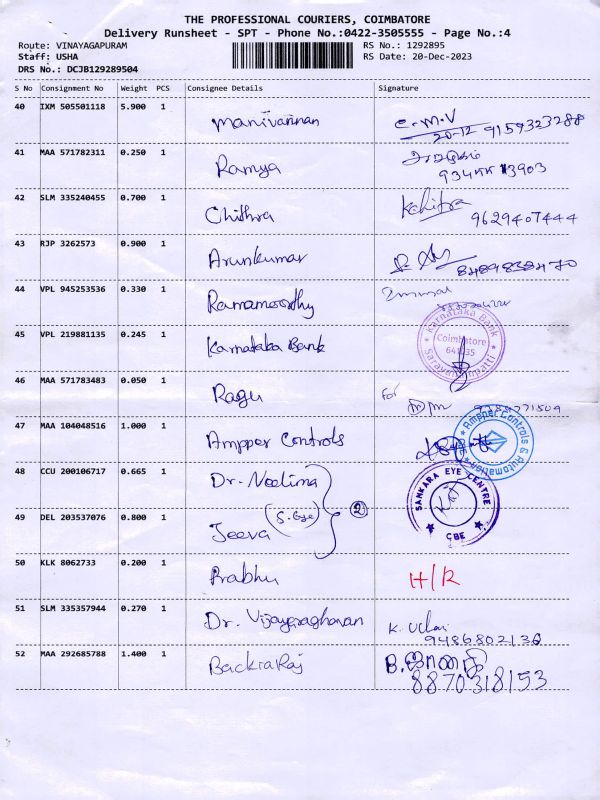 THE PROFESSIONAL COURIERS, COIMBATORE
Delivery Runsheet - SPT - Phone No.:0422-3505555 - Page No.:4
Route: VINAYAGAPURAM RS No.: 1292895
Staff: USHA RS Date: 20-Dec-2023
DRS No.: DCJB129289504
S No Consignment No Weight PCS Consignee Details Signature
40 IXM 505501118 5.900 1 Manivannan C.M.V
20-12 9159323288
41 MAA 571782311 0.250 1 Ramya
42 SLM 335240455 0.700 1 Chithra
9629407444
43 RJP 3262573 0.900 1 Arunkumar
8489838470
44 VPL 945253536 0.330 1 Ramamoorthy
45 VPL 219881135 0.245 1 Karnataka Bank Karnataka Bank
Coimbatore
46 MAA 571783483 0.050 1 Ragu For
47 MAA 104048516 1.000 1 Ampper Controls Ampper Controls & Automation
48 CCU 200106717 0.665 1 Dr. Neelima SANKARA EYE CENTRE
CBE
(S. Eye) 2
49 DEL 203537076 0.800 1 Jeeva
50 KLK 8062733 0.200 1 Prabhu H/R
51 SLM 335357944 0.270 1 Dr. Vijayaraghavan K.
9486802136
52 MAA 292685788 1.400 1 BackiaRaj B.
8870318153